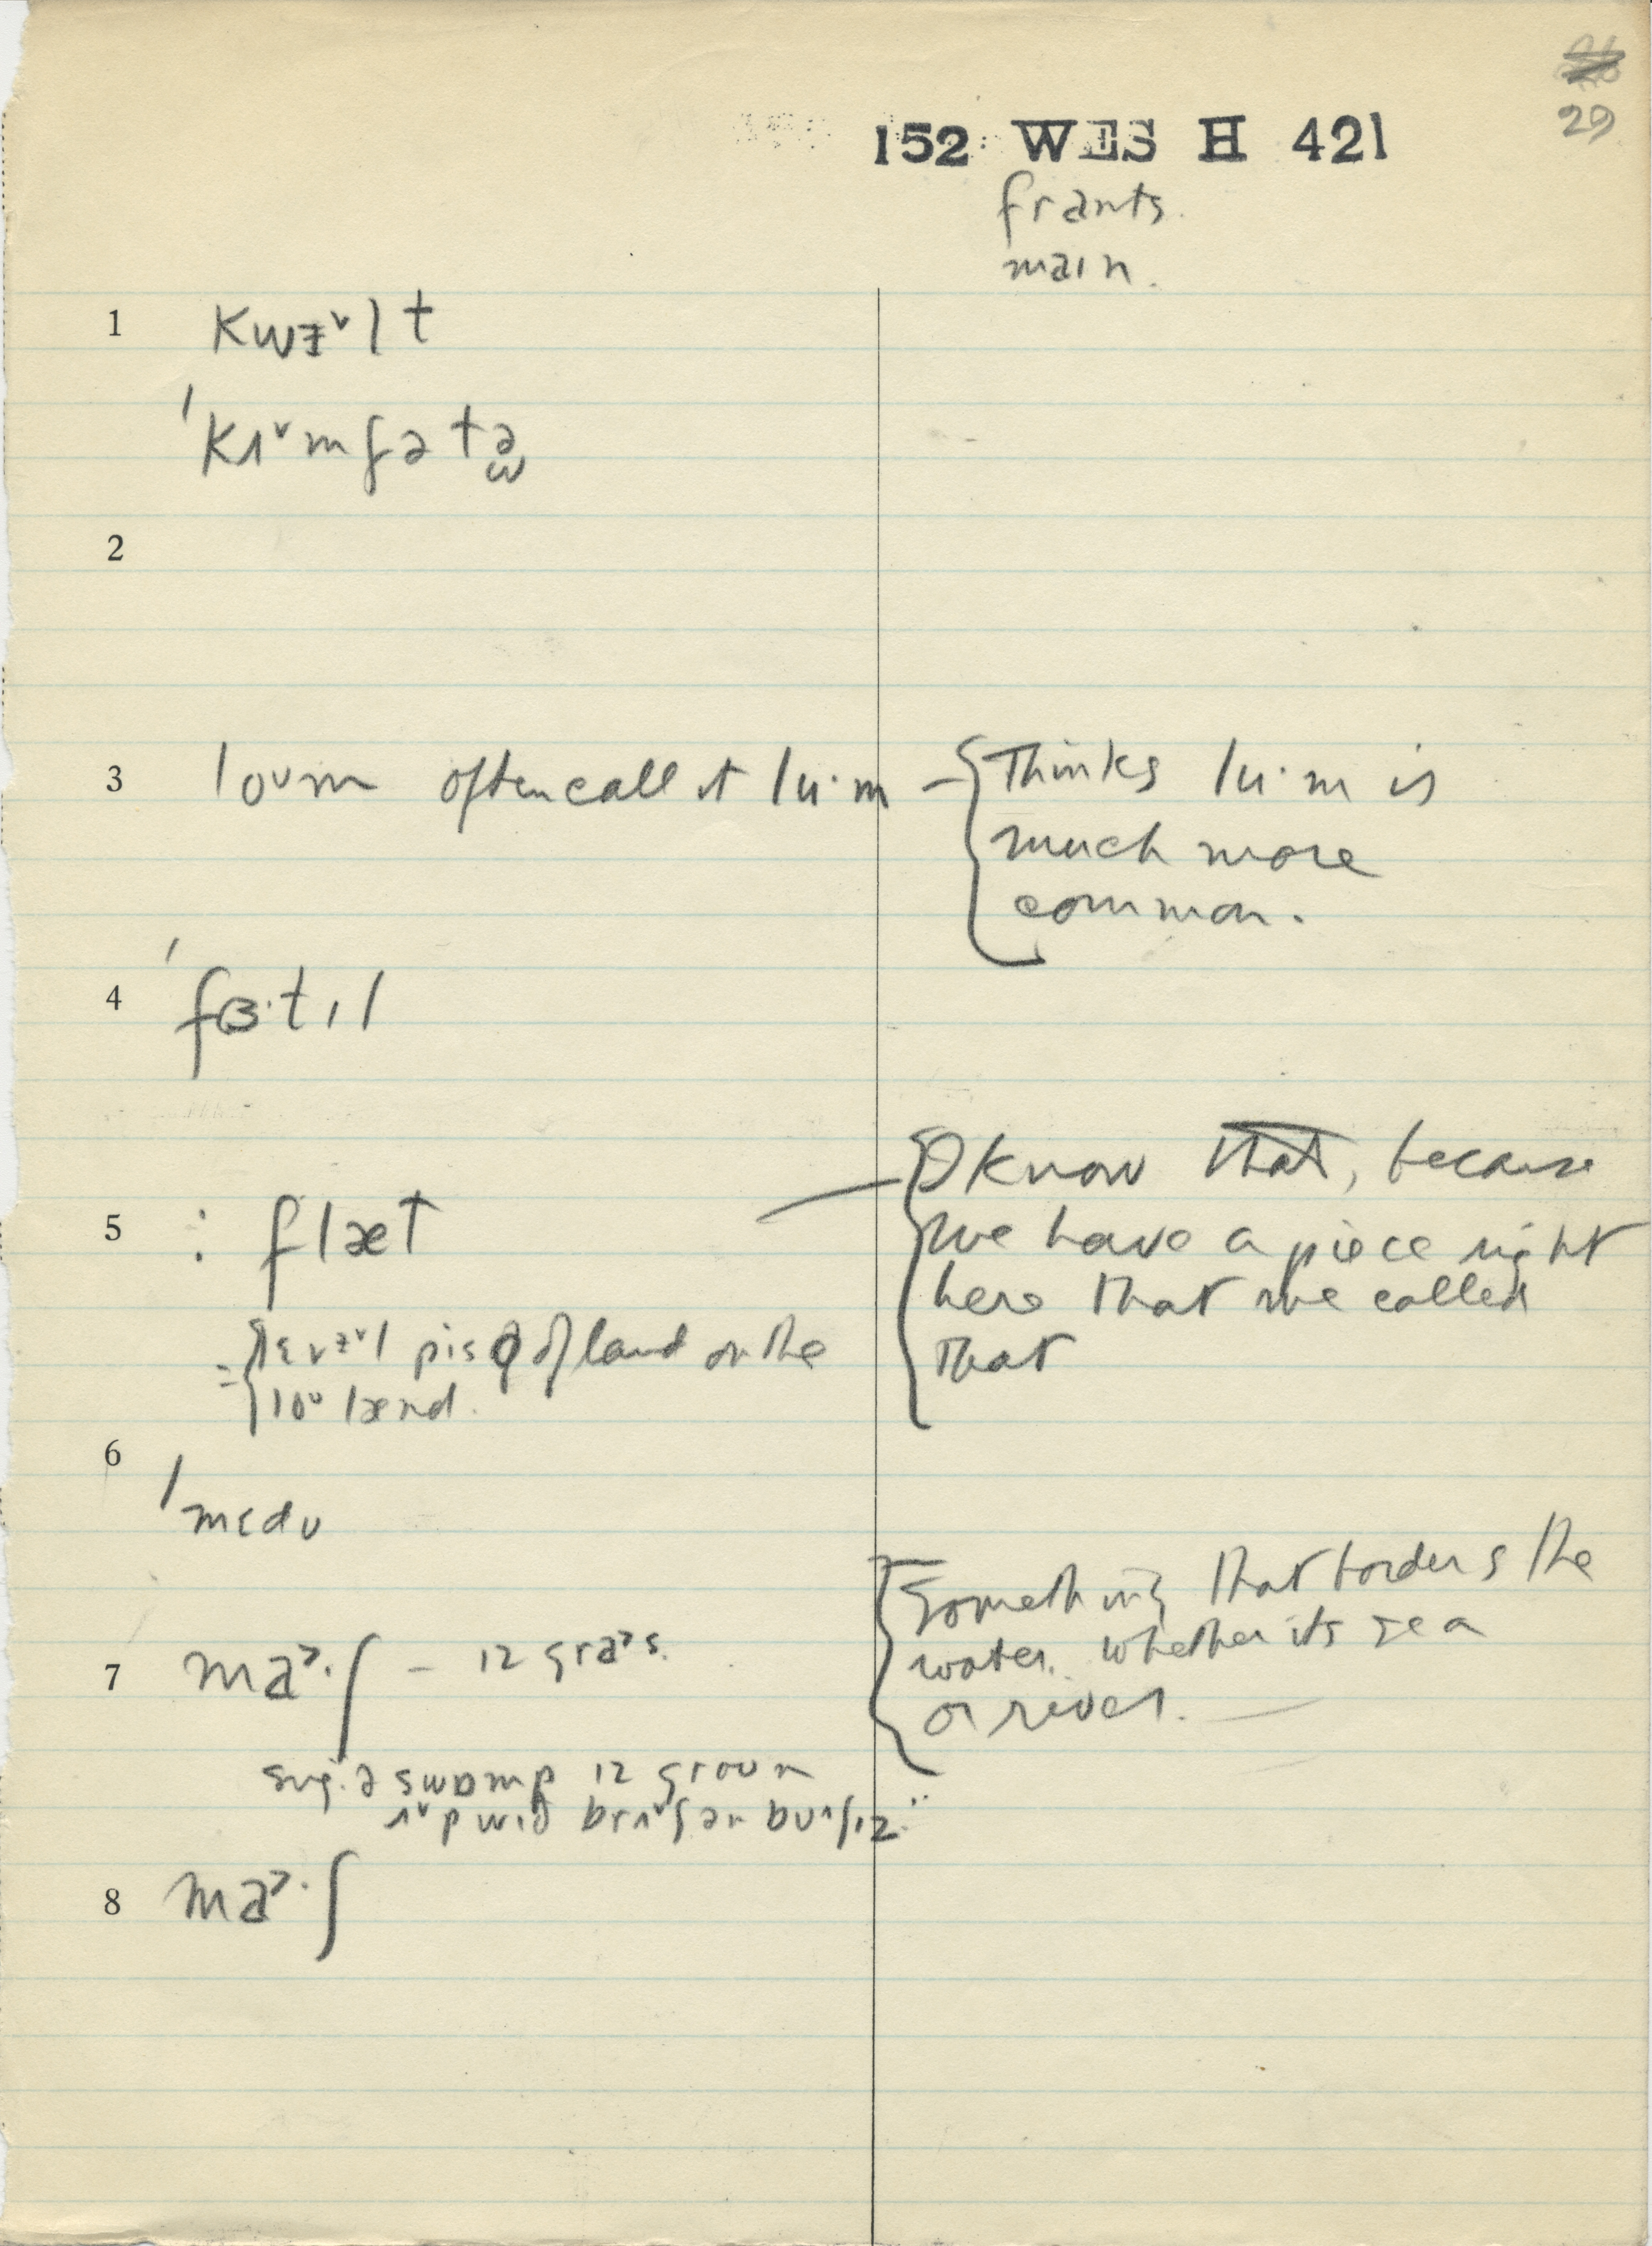 29
152 WES H 421
frants.
main.
1 kwɪᵛlt
ˈkʌᵛmfətə
2
3 loʊm often call it lu·m – Thinks lu·m is
much more
common.
4 ˈfɜ·tɪl
5 : flæt
I know that, because
we have a piece right
here that we called
that
= lɛvɪᵛl pis of land on the
loʊ lænd.
6 ˈmɛdʊ
7 ma˃·ʃ – ɪz gra˃s.
Something that borders the
water. whether its sea
or river.
sug. ə swɒmp ɪz groʊn
ʌᵛp wɪð brʌᵛʃ an bʊʃɪz..
8 ma˃·ʃ